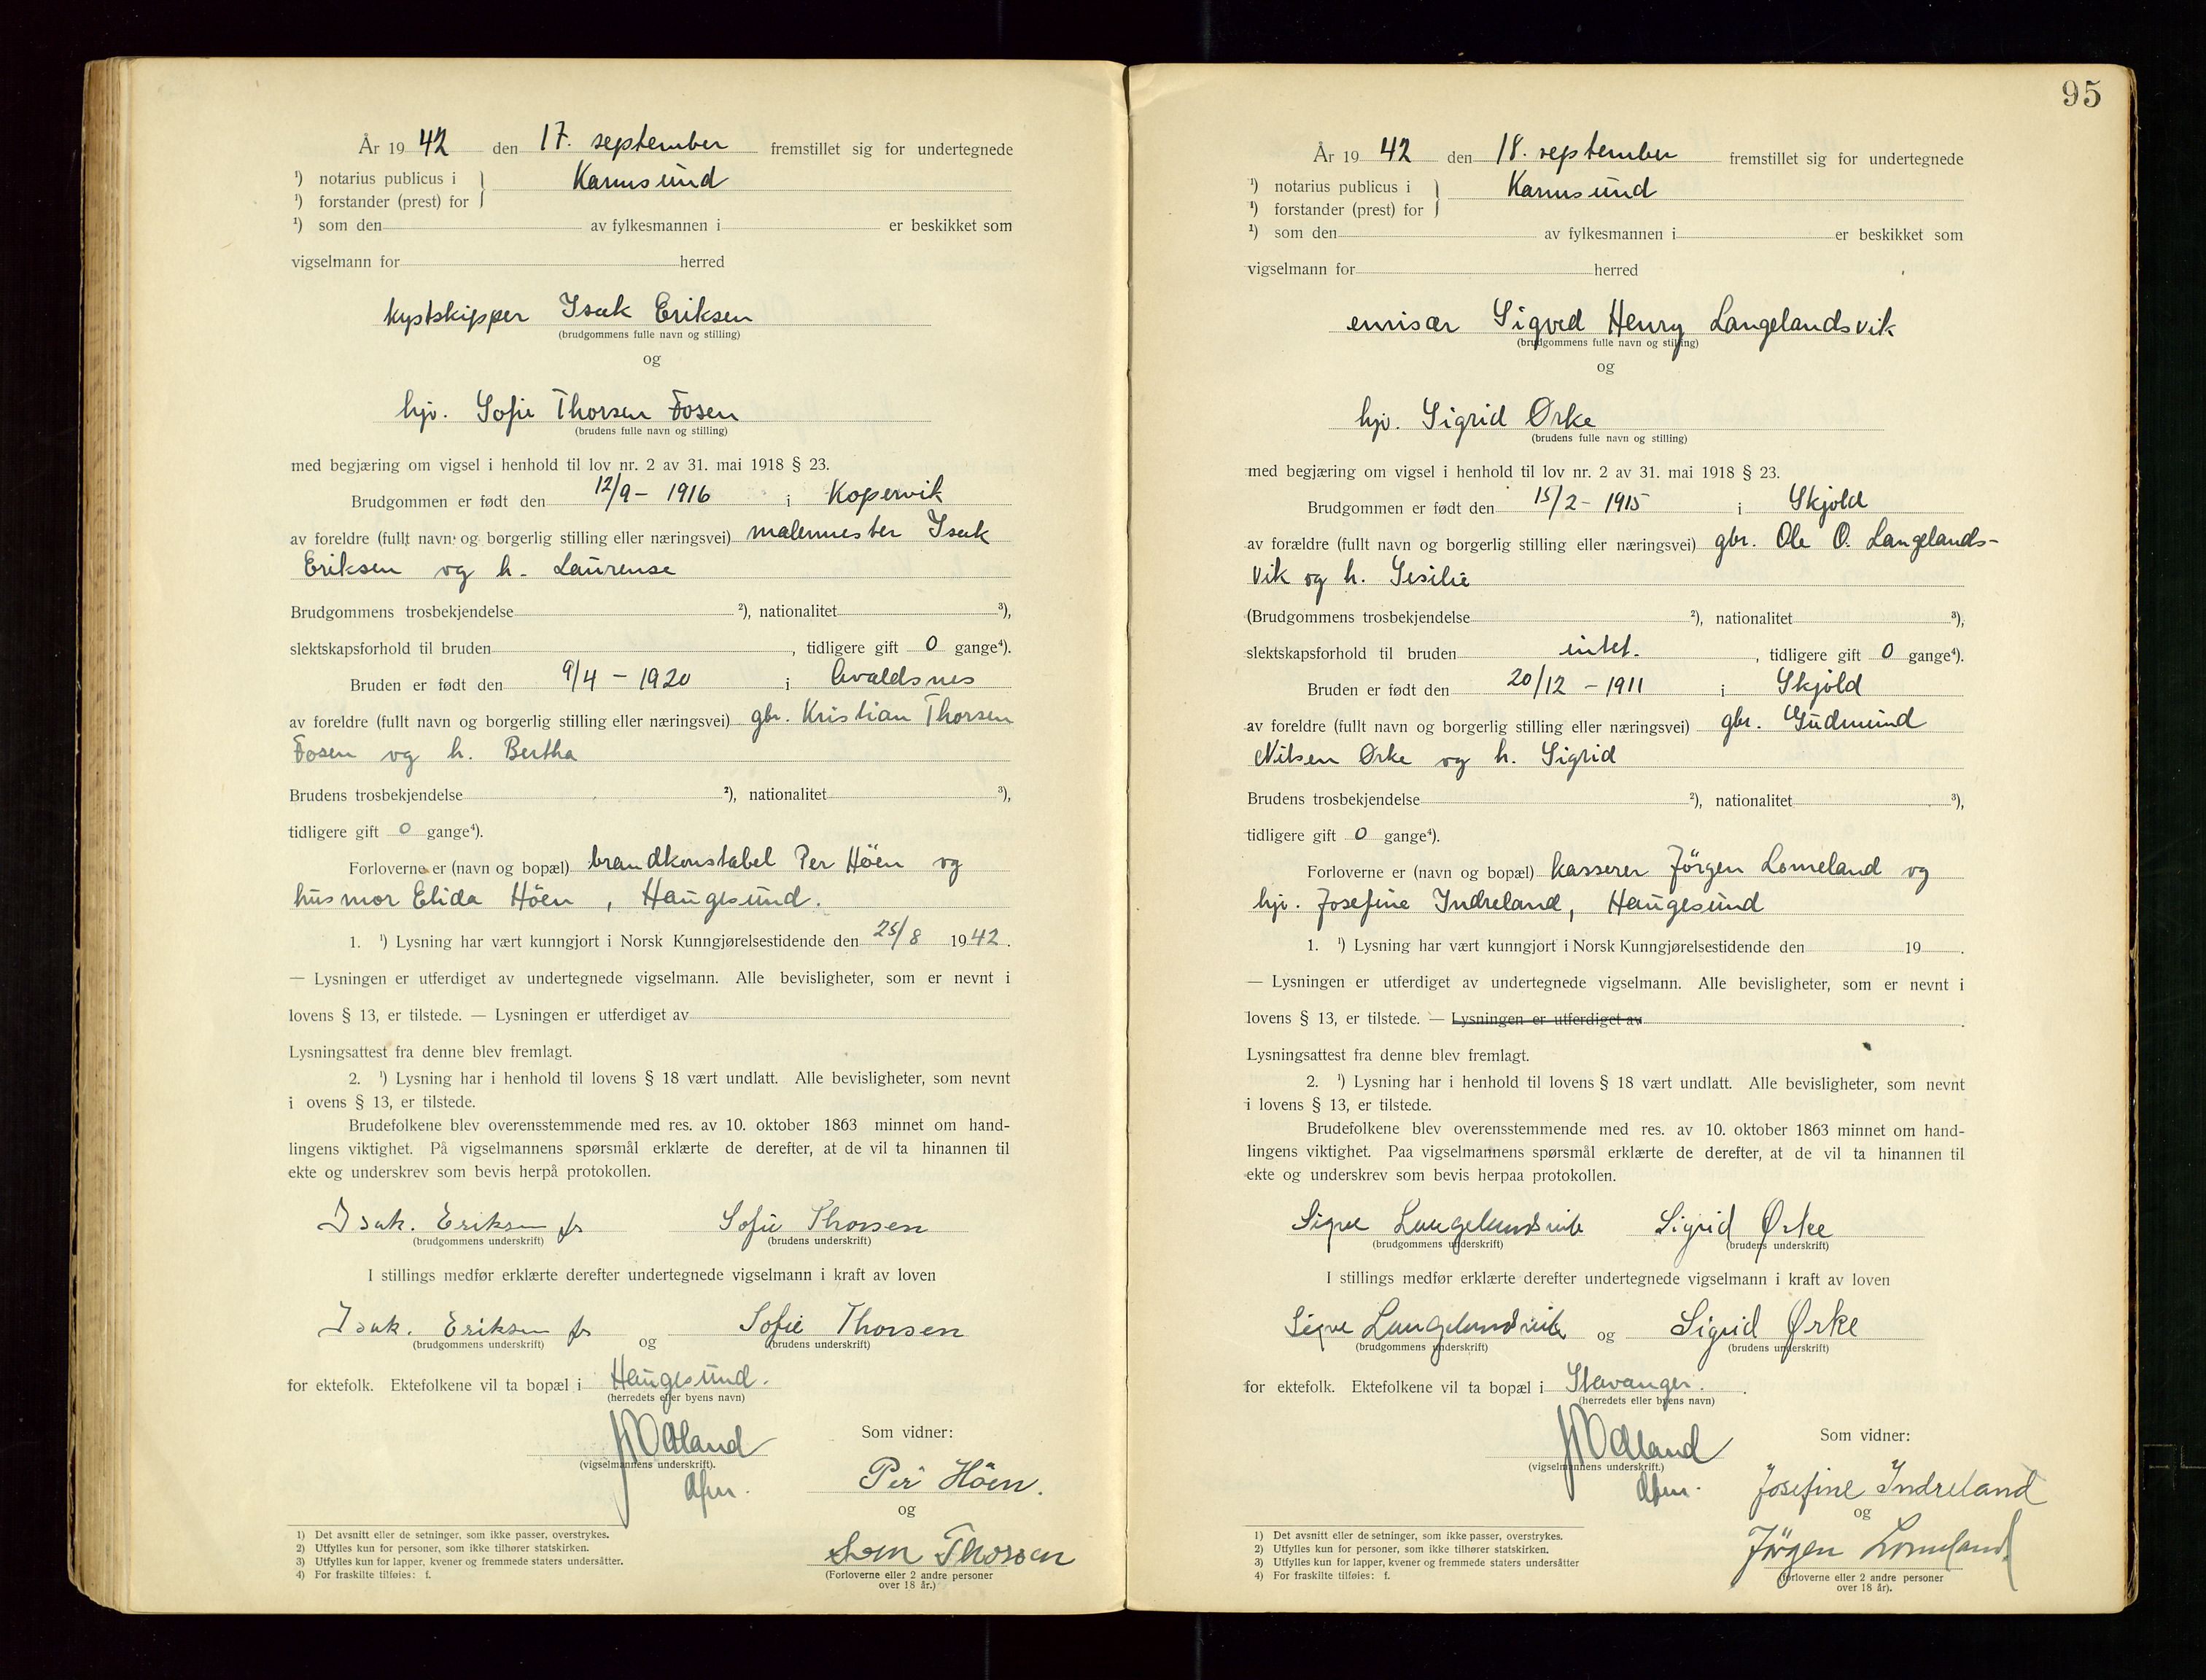 År 1942 den 17. september fremstillet sig for undertegnede
¹) notarius publicus i } Karmsund
¹) forstander (prest) for
¹) som den av fylkesmannen i er beskikket som
vigselmann for herred
kystskipper Isak Eriksen
(brudgommens fulle navn og stilling)
og
hjv. Sofie Thorsen Fosen
(brudens fulle navn og stilling)
med begjæring om vigsel i henhold til lov nr. 2 av 31. mai 1918 § 23.
Brudgommen er født den 12/9 - 1916 i Kopervik
av foreldre (fullt navn og borgerlig stilling eller næringsvei) malermester Isak
Eriksen og h. Laurense
Brudgommens trosbekjendelse ²), nationalitet ³),
slektskapsforhold til bruden , tidligere gift 0 gange⁴).
Bruden er født den 9/4 - 1920 i Avaldsnes
av foreldre (fullt navn og borgerlig stilling eller næringsvei) gbr. Kristian Thorsen
Fosen og h. Bertha
Brudens trosbekjendelse ²), nationalitet ³),
tidligere gift 0 gange⁴).
Forloverne er (navn og bopæl) brandkonstabel Per Höen og
husmor Elida Höen, Haugesund.
1. ¹) Lysning har vært kunngjort i Norsk Kunngjørelsestidende den 25/8 1942.
— Lysningen er utferdiget av undertegnede vigselmann. Alle bevisligheter, som er nevnt i
lovens § 13, er tilstede. — Lysningen er utferdiget av
Lysningsattest fra denne blev fremlagt.
2. ¹) Lysning har i henhold til lovens § 18 vært undlatt. Alle bevisligheter, som nevnt
i ovens § 13, er tilstede.
Brudefolkene blev overensstemmende med res. av 10. oktober 1863 minnet om hand-
lingens viktighet. På vigselmannens spørsmål erklærte de derefter, at de vil ta hinannen til
ekte og underskrev som bevis herpå protokollen.
Isak. Eriksen jr Sofie Thorsen
(brudgommens underskrift) (brudens underskrift)
I stillings medfør erklærte derefter undertegnede vigselmann i kraft av loven
Isak. Eriksen jr og Sofie Thorsen
(brudgommens underskrift) (brudens underskrift)
for ektefolk. Ektefolkene vil ta bopæl i Haugesund.
(herredets eller byens navn)
Ådland Som vidner:
(vigselmannens underskrift).
Per Höen.
og
Sven Thorsen
(Forloverne eller 2 andre personer
over 18 år.)
1) Det avsnitt eller de setninger, som ikke passer, overstrykes.
2) Utfylles kun for personer, som ikke tilhører statskirken.
3) Utfylles kun for lapper, kvener og fremmede staters undersåtter.
4) For fraskilte tilføies: f.
95
År 1942 den 18. september fremstillet sig for undertegnede
¹) notarius publicus i } Karmsund
¹) forstander (prest) for
¹) som den av fylkesmannen i er beskikket som
vigselmann for herred
emisær Sigved Henry Langelandsvik
(brudgommens fulle navn og stilling)
og
hjv. Sigrid Ørke
(brudens fulle navn og stilling)
med begjæring om vigsel i henhold til lov nr. 2 av 31. mai 1918 § 23.
Brudgommen er født den 15/2 - 1915 i Skjold
av forældre (fullt navn og borgerlig stilling eller næringsvei) gbr. Ole O. Langelands-
vik og h. Sesilie
(Brudgommens trosbekjendelse ²), nationalitet ³),
slektskapsforhold til bruden intet. , tidligere gift 0 gange⁴).
Bruden er født den 20/12 - 1911 i Skjold
av foreldre (fullt navn og borgerlig stilling eller næringsvei) gbr. Gudmund
Nilsen Ørke og h. Sigrid
Brudens trosbekjendelse ²), nationalitet ³),
tidligere gift 0 gange⁴).
Forloverne er (navn og bopæl) kasserer Jörgen Lomeland og
hjv. Josefine Indreland, Haugesund
1. ¹) Lysning har vært kunngjort i Norsk Kunngjørelsestidende den 19 .
— Lysningen er utferdiget av undertegnede vigselmann. Alle bevisligheter, som er nevnt i
lovens § 13, er tilstede. — Lysningen er utferdiget av
Lysningsattest fra denne blev fremlagt.
2. ¹) Lysning har i henhold til lovens § 18 vært undlatt. Alle bevisligheter, som nevnt
i lovens § 13, er tilstede.
Brudefolkene blev overensstemmende med res. av 10. oktober 1863 minnet om hand-
lingens viktighet. Paa vigselmannens spørsmål erklærte de derefter, at de vil ta hinannen til
ekte og underskrev som bevis herpaa protokollen.
Sigve Langelandsvik Sigrid Ørke
(brudgommens underskrift) (brudens underskrift)
I stillings medfør erklærte derefter undertegnede vigselmann i kraft av loven
Sigve Langelandsvik og Sigrid Ørke
(brudgommens underskrift) (brudens underskrift)
for ektefolk. Ektefolkene vil ta bopæl i Stavanger.
(herredets eller byens navn)
Ådland Som vidner:
(vigselmannens underskrift.)
Josefine Indreland
og
Jörgen Lomeland
(forloverne eller 2 andre personer
over 18 år).
1) Det avsnitt eller de setninger, som ikke passer, overstrykes.
2) Utfylles kun for personer, som ikke tilhører statskirken.
3) Utfylles kun for lapper, kvener og fremmede staters undersåtter
4) For fraskilte tilføies: f.